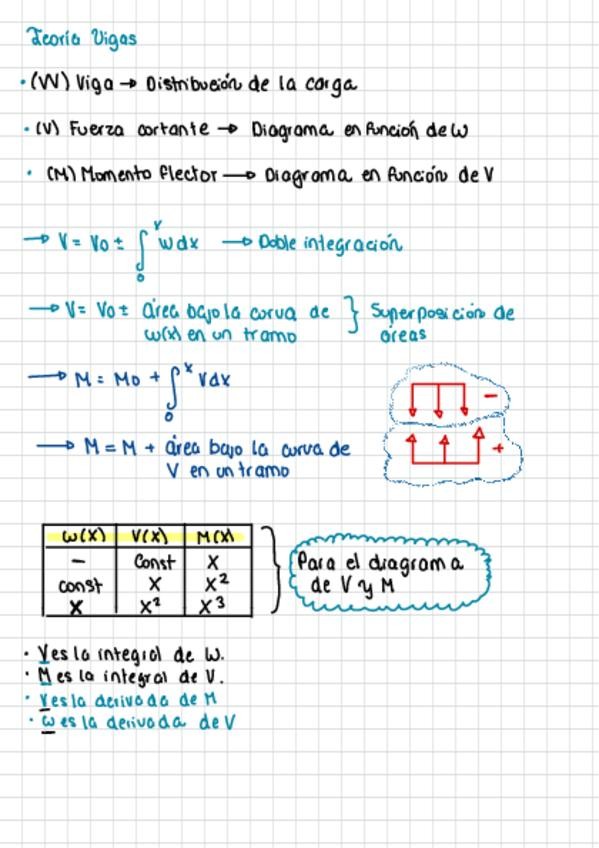 Teoría Vigas
• (W) Viga → Distribución de la carga
• (V) Fuerza cortante → Diagrama en función de w
• (M) Momento flector → Diagrama en función de V
→ V = Vo ± ∫₀ˣ wdx → Doble integración
→ V = Vo ± área bajo la curva de w(x) en un tramo } Superposición de áreas
→ M = Mo + ∫₀ˣ Vdx
→ M = M + área bajo la curva de V en un tramo
−
+
w(x) V(x) M(x)
− Const x
const x x²
x x² x³
Para el diagrama de V y M
• V es la integral de W.
• M es la integral de V.
• V es la derivada de M
• w es la derivada de V